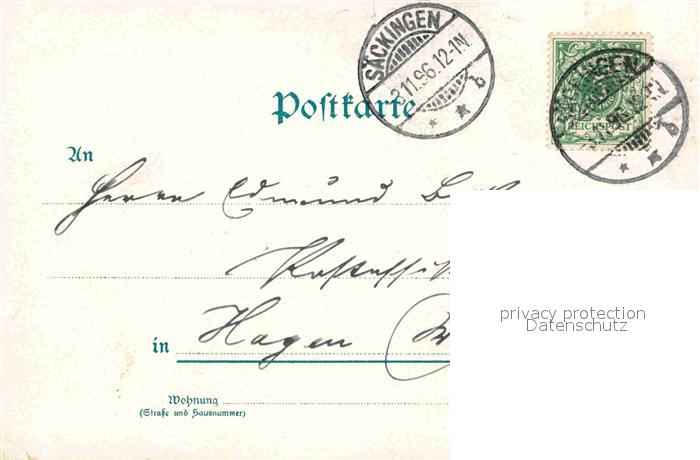 SÄCKINGEN
3.11.96.12-1N.
SÄCKINGEN
REICHSPOST
Postkarte
An
Herrn Edmund
in Hagen
Wohnung
(Straße und Hausnummer)
privacy protection
Datenschutz